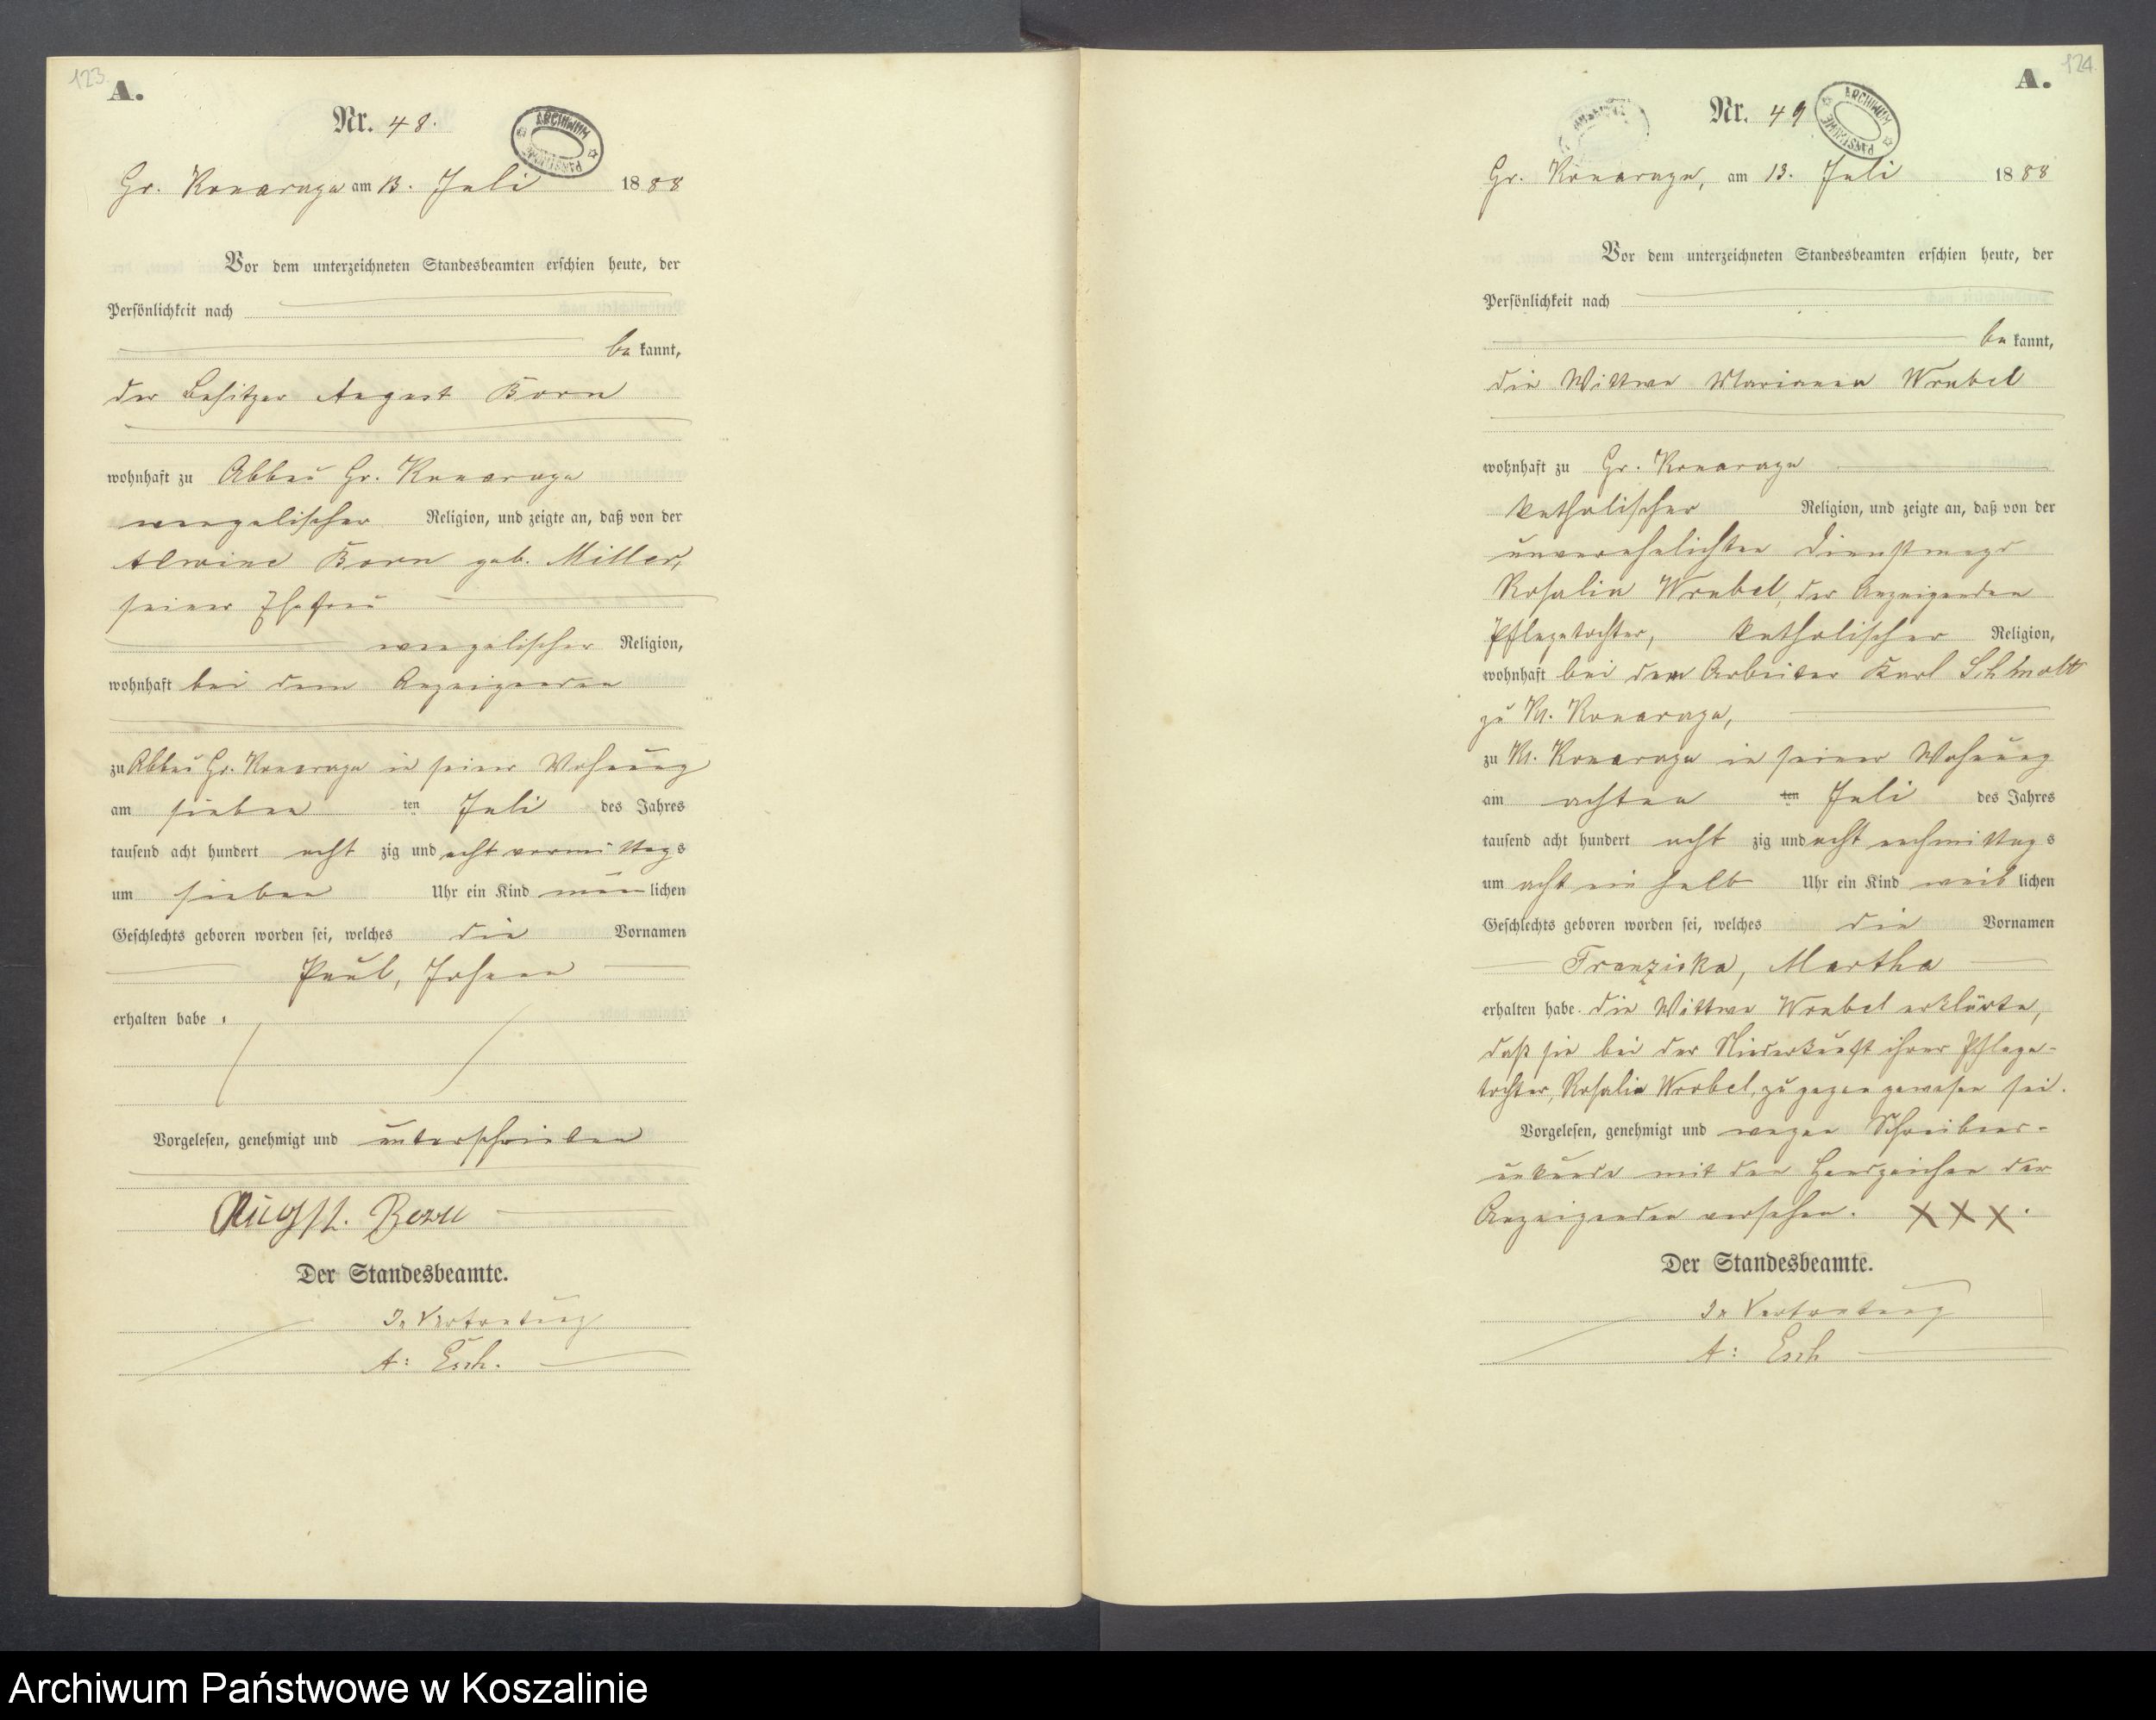 123.
A.
Nr. 48.
ARCHIWUM PAŃSTWOWE
Gr. Konarzyn am 13. Juli 1888
Vor dem unterzeichneten Standesbeamten erschien heute, der
Persönlichkeit nach
be kannt,
der Besitzer August Born
wohnhaft zu Abbau Gr. Konarzyn
evangelischer Religion, und zeigte an, daß von der
Alwine Born geb. Miller,
seiner Ehefrau
evangelischer Religion,
wohnhaft bei dem Anzeigenden
zu Abbau Gr. Konarzyn in seiner Wohnung
am sieben ten Juli des Jahres
tausend acht hundert acht zig und acht vormittags
um sieben Uhr ein Kind männlichen
Geschlechts geboren worden sei, welches die Vornamen
Paul, Johann
erhalten habe.
Vorgelesen, genehmigt und unterschrieben
August Born
Der Standesbeamte.
In Vertretung
A: Esch.
124.
A.
Nr. 49
ARCHIWUM PAŃSTWOWE
Gr. Konarzyn, am 13. Juli 1888
Vor dem unterzeichneten Standesbeamten erschien heute, der
Persönlichkeit nach
be kannt,
die Wittwe Marianna Wrubel
wohnhaft zu Gr. Konarzyn
katholischer Religion, und zeigte an, daß von der
unverehelichten Dienstmagd
Rosalie Wrubel, der Anzeigenden
Pflegetochter, katholischer Religion,
wohnhaft bei dem Arbeiter Karl Schmolt
zu Kl. Konarzyn,
zu Kl. Konarzyn in seiner Wohnung
am achten ten Juli des Jahres
tausend acht hundert acht zig und acht nachmittags
um acht ein halb Uhr ein Kind weiblichen
Geschlechts geboren worden sei, welches die Vornamen
Franziska, Martha
erhalten habe. Die Wittwe Wrubel erklärte,
daß sie bei der Niederkunft ihrer Pflege-
tochter, Rosalie Wrobel, zugegen gewesen sei.
Vorgelesen, genehmigt und wegen Schreibens-
unkunde mit den Handzeichen der
Anzeigenden versehen. XXX.
Der Standesbeamte.
In Vertretung
A: Esch
Archiwum Państwowe w Koszalinie